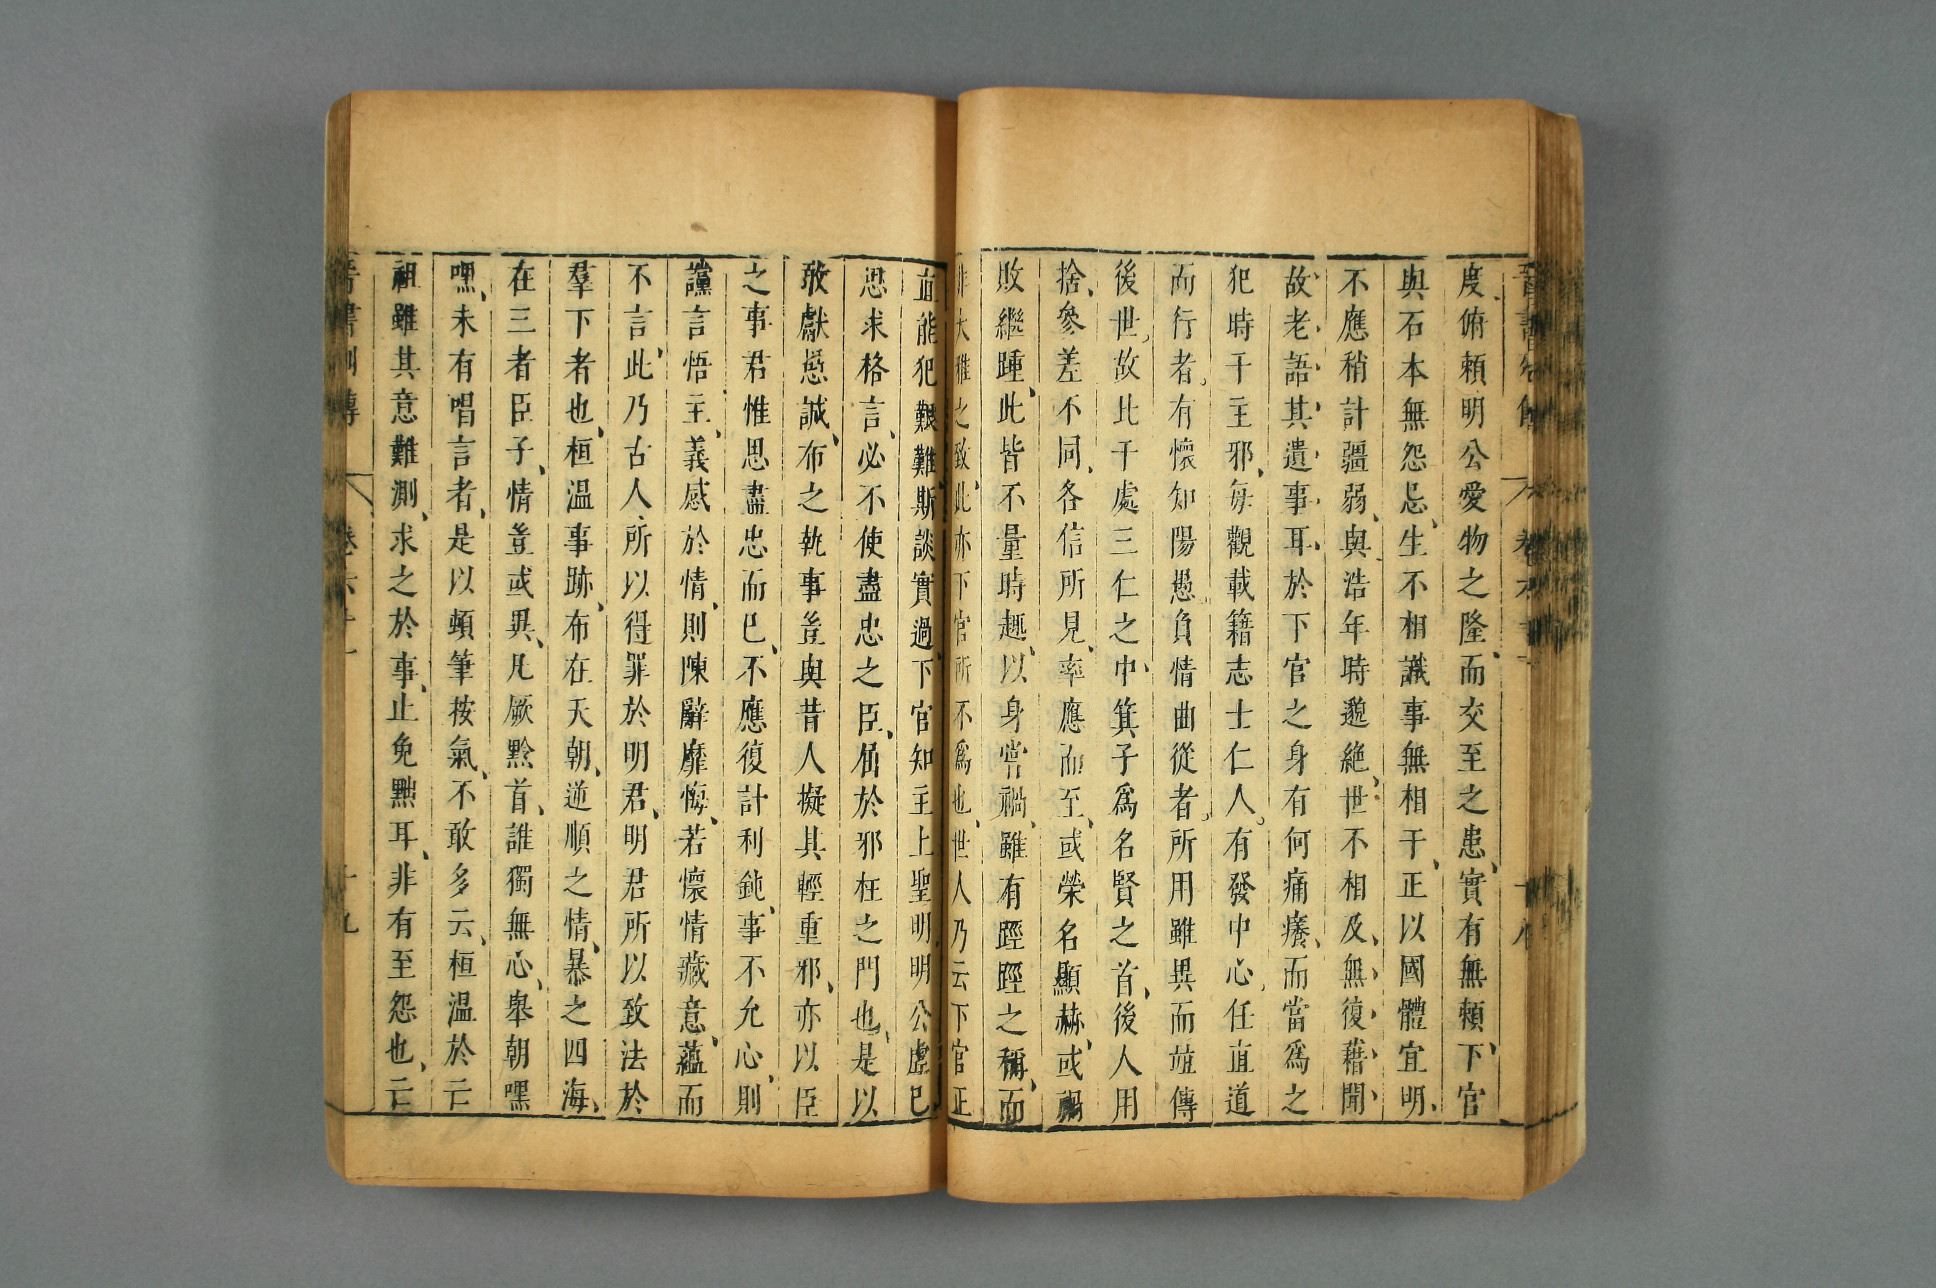 度俯賴明公愛物之隆而交至之患實有無賴下官
與石本無怨忌生不相識事無相干正以國體宜明
不應稍計彊弱與浩年時邈絶世不相及無復藉聞
故老語其遺事耳於下官之身有何痛癢而當爲之
犯時干主邪每觀載籍志士仁人有發中心任直道
而行者有懷知陽愚負情曲從者所用雖異而竝傳
後世故比干處三仁之中箕子爲名賢之首後人用
捨參差不同各信所見率應而至或榮名顯赫或禍
敗繼踵此皆不量時趣以身嘗禍雖有踁踁之稱而
非大雅之致此亦下官所不爲也世人乃云下官正
直能犯艱難斯談實過下官知主上聖明明公虛己
思求格言必不使盡忠之臣屈於邪枉之門也是以
敢獻愚誠布之執事豈與昔人擬其輕重邪亦以臣
之事君惟思盡忠而已不應復計利鈍事不允心則
讜言悟主義感於情則陳辭靡悔若懷情藏意蘊而
不言此乃古人所以得罪於明君明君所以致法於
羣下者也桓温事跡布在天朝逆順之情暴之四海
在三者臣子情豈或異凡厥黔首誰獨無心舉朝嘿
嘿未有唱言者是以頓筆按氣不敢多云桓温於亡
祖雖其意難測求之於事止免黜耳非有至怨也亡
晉書列傳 卷六十一 十九